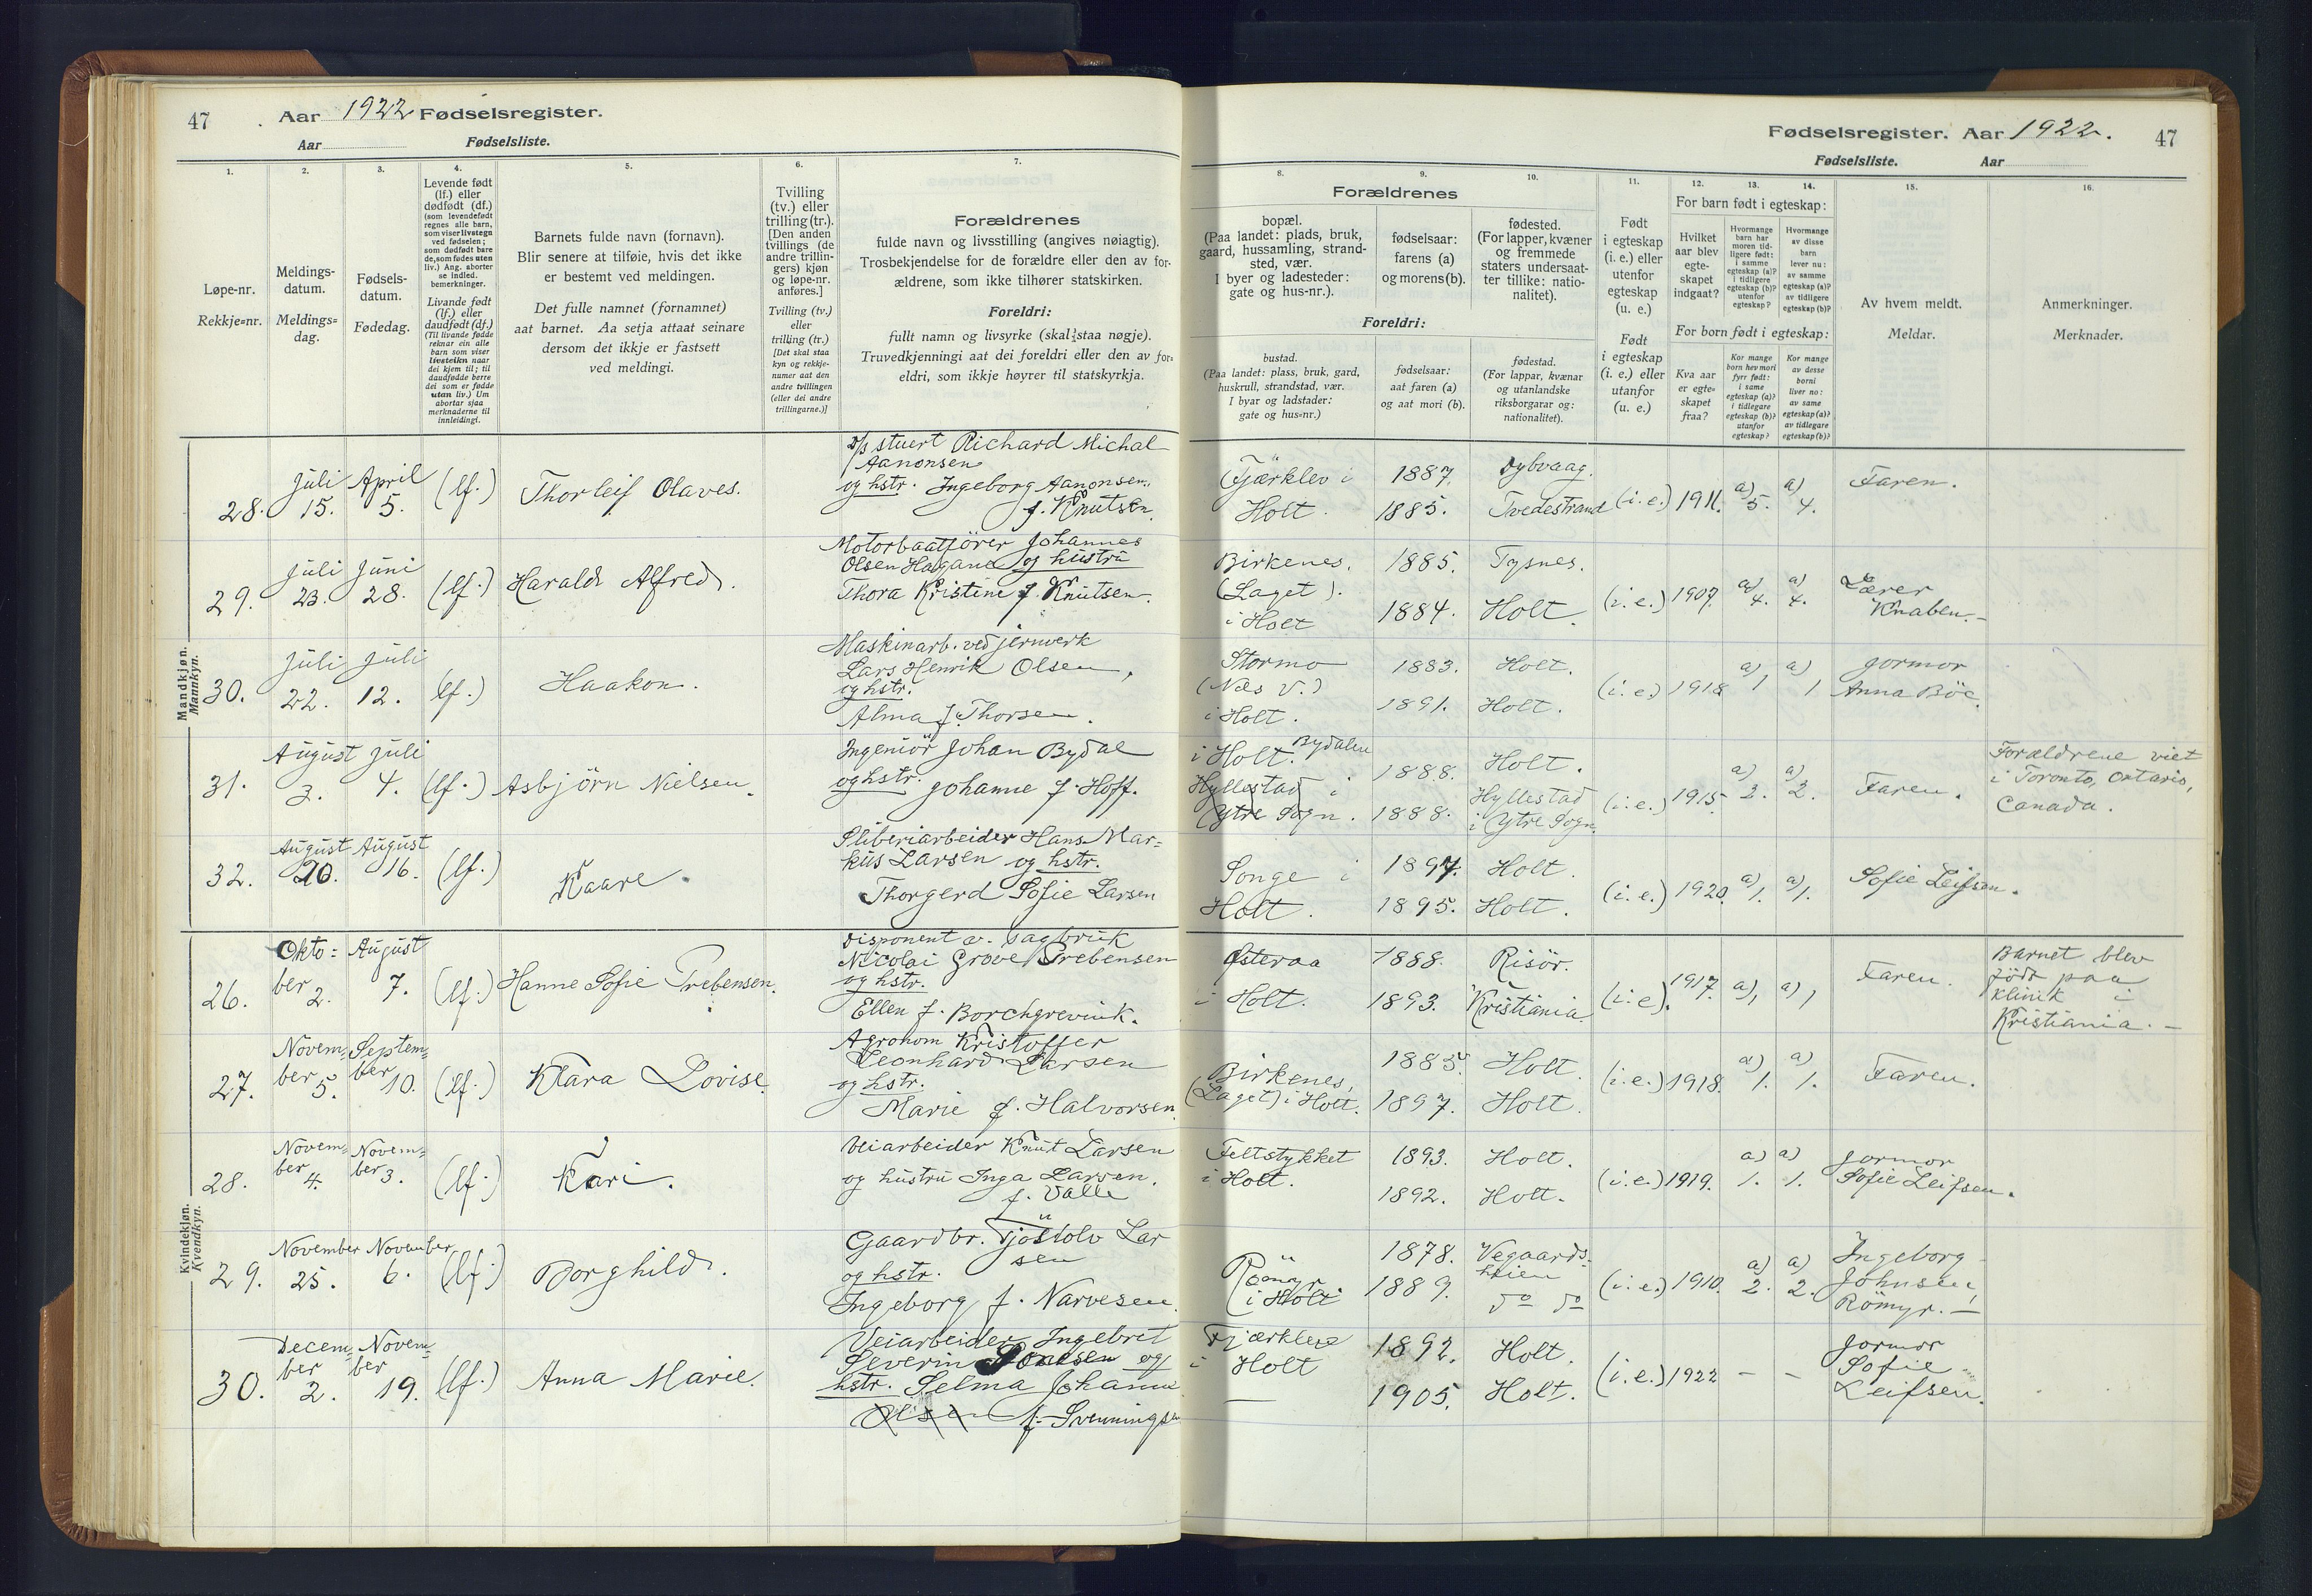 47
Aar 1922 Fødselsregister.
Aar
Fødselsliste.
1.
2.
3.
4.
5.
6.
7.
Løpe-nr.
Rekkje=nr.
Meldings-
datum.
Meldings=
dag.
Fødsels-
datum.
Fødedag.
Levende født
(lf.) eller
dødfødt (df.)
(som levendefødt
regnes alle barn,
som viser livstegn
ved fødselen;
som dødfødt bare
de, som fødes uten
liv.) Ang. aborter
se indled.
bemerkninger.
Livande født
(lf.) eller
daudfødt (df.)
(Til livande fødde
reknar ein alle
barn som viser
livsteikn naar
dei kjem til; til
daudfødde berre
dei som er fødde
utan liv.) Um
abortar sjaa
merknaderne til
innleidingi.
Barnets fulde navn (fornavn).
Blir senere at tilføie, hvis det ikke
er bestemt ved meldingen.
Det fulle namnet (fornamnet)
aat barnet. Aa setja attaat seinare
dersom det ikkje er fastsett
ved meldingi.
Tvilling
(tv.) eller
trilling (tr.).
[Den anden
tvillings (de
andre trillin-
gers) kjøn
og løpe-nr.
anføres.]
Tvilling (tv.)
eller
trilling (tr.)
[Det skal staa
kyn og rekkje-
numer aat den
andre tvillingen
(eller dei andre
trillingarne.)]
Forældrenes
fulde navn og livsstilling (angives nøiagtig).
Trosbekjendelse for de forældre eller den av for-
ældrene, som ikke tilhører statskirken.
Foreldri:
fullt namn og livsyrke (skal staa nøgje).
Truvedkjenningi aat dei foreldri eller den av for-
eldri, som ikkje høyrer til statskyrkja.
Mandkjøn.
Mannkyn.
28.
Juli
15.
April
5.
(lf.)
Thorleif Olaves.
D/s stuert Richard Michal
Aanonsen
og hstr. Ingeborg Aanonsen,
f. Knutsen.
29.
Juli
23.
Juni
28.
(lf.)
Harald Alfred.
Motorbaatfører Johannes
Olsen Hagane og hustru
Thora Kristine f. Knutsen.
30.
Juli
22.
Juli
12.
(lf.)
Haakon.
Maskinarb. ved jernverk
Lars Henrik Olsen,
og hstr.
Alma f. Thorsen.
31.
August
3.
Juli
4.
(lf.)
Asbjörn Nielsen.
Ingeniör Johan Bydal
og hstr. Johanne f. Hoff.
32.
August
20.
August
16.
(lf.)
Kaare.
Sliberiarbeider Hans Mar=
kus Larsen og hstr.
Thorgerd Sofie Larsen
Kvindekjøn.
Kvendkyn.
26.
Okto=
ber 2.
August
7.
(lf.)
Hanne Sofie Prebensen.
Disponent av sagbruk
Nicolai Grove Prebensen
og hstr.
Ellen f. Borchgrevink.
27.
Novem=
ber 5.
Septem=
ber 10.
(lf.)
Klara Lovise
Agronom Kristoffer
Leonhard Larsen
og hstr.
Marie f. Halvorsen
28.
Novem=
ber 4.
Novem=
ber 3.
(lf.)
Kari.
Veiarbeider Knut Larsen
og hustru Inga Larsen,
f. Valle
29.
November
25.
November
6.
(lf.)
Borghild.
Gaardbr. Tjöstolv Lar
sen
og hstr.
Ingeborg f. Narvesen.
30.
Decem=
ber
2.
Novem=
ber
19.
(lf.)
Anna Marie.
Veiarbeider Ingebret
Severin og
hstr. Selma Johanne
Olsen f. Svenningsen
Fødselsregister. Aar 1922.
47
Fødselsliste.
Aar
8.
9.
10.
11.
12.
13.
14.
15.
16.
Forældrenes
bopæl.
(Paa landet: plads, bruk,
gaard, hussamling, strand-
sted, vær.
I byer og ladesteder:
gate og hus-nr.).
fødselsaar:
farens (a)
og morens (b).
fødested.
(For lapper, kvæner
og fremmede
staters undersaat-
ter tillike: natio-
nalitet).
Foreldri:
bustad.
(Paa landet: plass, bruk, gard,
huskrull, strandstad, vær.
I byar og ladstader:
gate og hus=nr.)
fødselsaar:
aat faren (a)
og aat mori (b).
fødestad.
(For lappar, kvænar
og utanlandske
riksborgarar og:
nationalitet).
Født
i egteskap
(i. e.) eller
utenfor
egteskap
(u. e.)
Født
i egteskap
(i. e.) eller
utanfor
(u. e.)
For barn født i egteskap:
Hvilket
aar blev
egte-
skapet
indgaat?
Hvormange
barn har
moren tid-
ligere født:
i samme
egteskap (a)?
i tidligere
egteskap (b)?
utenfor
egteskap?
Hvormange
av disse
barn
lever nu:
av samme
egteskap (a)?
av tidligere
egteskap (b)?
For born født i egteskap:
Kva aar
er egte=
skapet
fraa?
Kor mange
born hev mori
fyrr født:
i same
egteskap (a)?
i tidlegare
egteskap (b)?
utanfor
egteskap?
Kor mange
av desse
borni
liver no:
av same
egteskap (a)?
av tidlegare
egteskap (b)?
Av hvem meldt.
Meldar.
Anmerkninger.
Merknader.
Tjærklev i
Holt.
1887.
1885.
Dybvaag.
Tvedestrand
(i.e.)
1911.
a)
5.
a)
4.
Faren.
Birkenes,
(Laget).
i Holt
1885.
1884.
Tysnes.
Holt.
(i.e.)
1907.
a)
4.
a)
4.
Lærer
Knaben.-
Stormo
(Næs V.)
i Holt.
1883.
1891.
Holt.
Holt.
(i.e.)
1918
a)
1
a)
1
Jormor
Anna Böe.
i Holt. Bydalen
Hyllestad i
Ytre Sogn.
1888.
1888.
Holt.
Hyllestad
i Ytre Sogn.
(i.e.)
1915.
a)
2.
a)
2.
Faren.
Forældrene viet
i Toronto, Ontario,
Canada.
Songe i
Holt.
1897.
1895.
Holt.
Holt.
(i.e.)
1920.
a)
1.
a)
1.
Sofie Leifsen.
Østeraa
i Holt.
1888.
1893.
Risör.
Kristiania.
(i.e.)
1917.
a)
1
a)
1
Faren.
Barnet blev
född paa
klinik i
Kristiania. -
Birkenes,
(Laget) i Holt.
1885.
1897.
Holt.
Holt.
(i.e.)
1918.
a)
1.
a)
1.
Faren.
Feltstykket
i Holt.
1893.
1892.
Holt.
Holt.
(i.e.)
1919.
a)
1.
a)
1.
Jormor
Sofie Leifsen.
Römyr
i Holt
1878.
1889.
Vegaards-
heien
do do
(i.e.)
1910.
a)
2.
a)
2.
Ingeborg
Johnsen,
Römyr. -
i Holt
—
1892.
1905.
Holt.
Holt.
(i.e.)
1922
-
-
Jormor
Sofie
Leifsen.